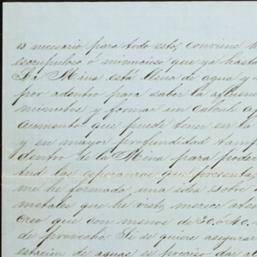 es necesario para todo esto, conviene
escrupuloso ó minucioso que ya hasta
La Mina está llena de agua y
por adentro para saber la
mineros y formar un calculo
aumento que puede tener en la
y en mayor profundidad
dentro de la Mina para poder
And las esperanzas que presenta
me he formado una idea sobre
metales que he visto, merece
Creo que con menos de 30. ó 40.
de provecho. Si se quiere asegurar
de aguas es preciso dar